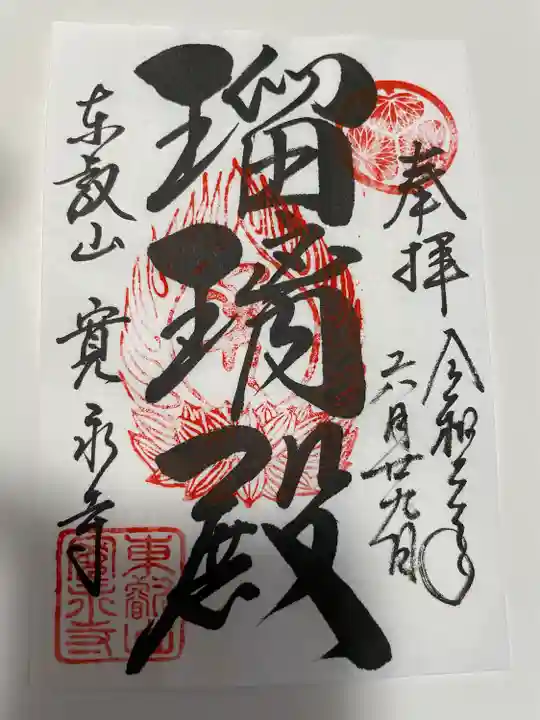 奉拝
令和年
六月廿九日
瑠璃殿
東叡山 寛永寺
東叡山
寛永寺